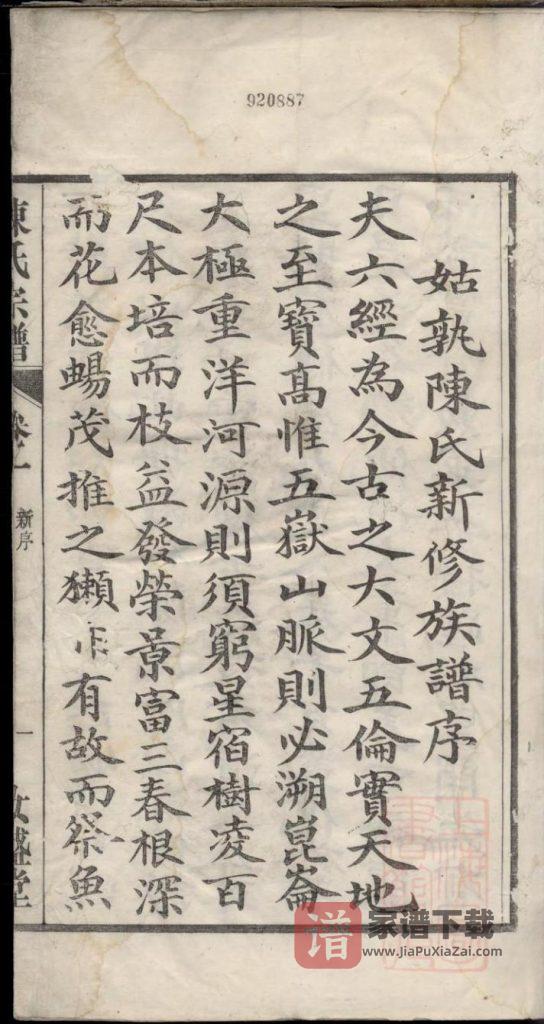 920887
姑孰陳氏新修族譜序
夫六經為今古之大文五倫實天地
之至寶高惟五嶽山脈則必溯崑崙
大極重洋河源則須窮星宿樹凌百
尺本培而枝益發榮景富三春根深
而花愈暢茂推之獺有故而祭魚
陳氏宗譜
卷一
新序
一
谱
家谱下载
www.JiaPuXiaZai.com